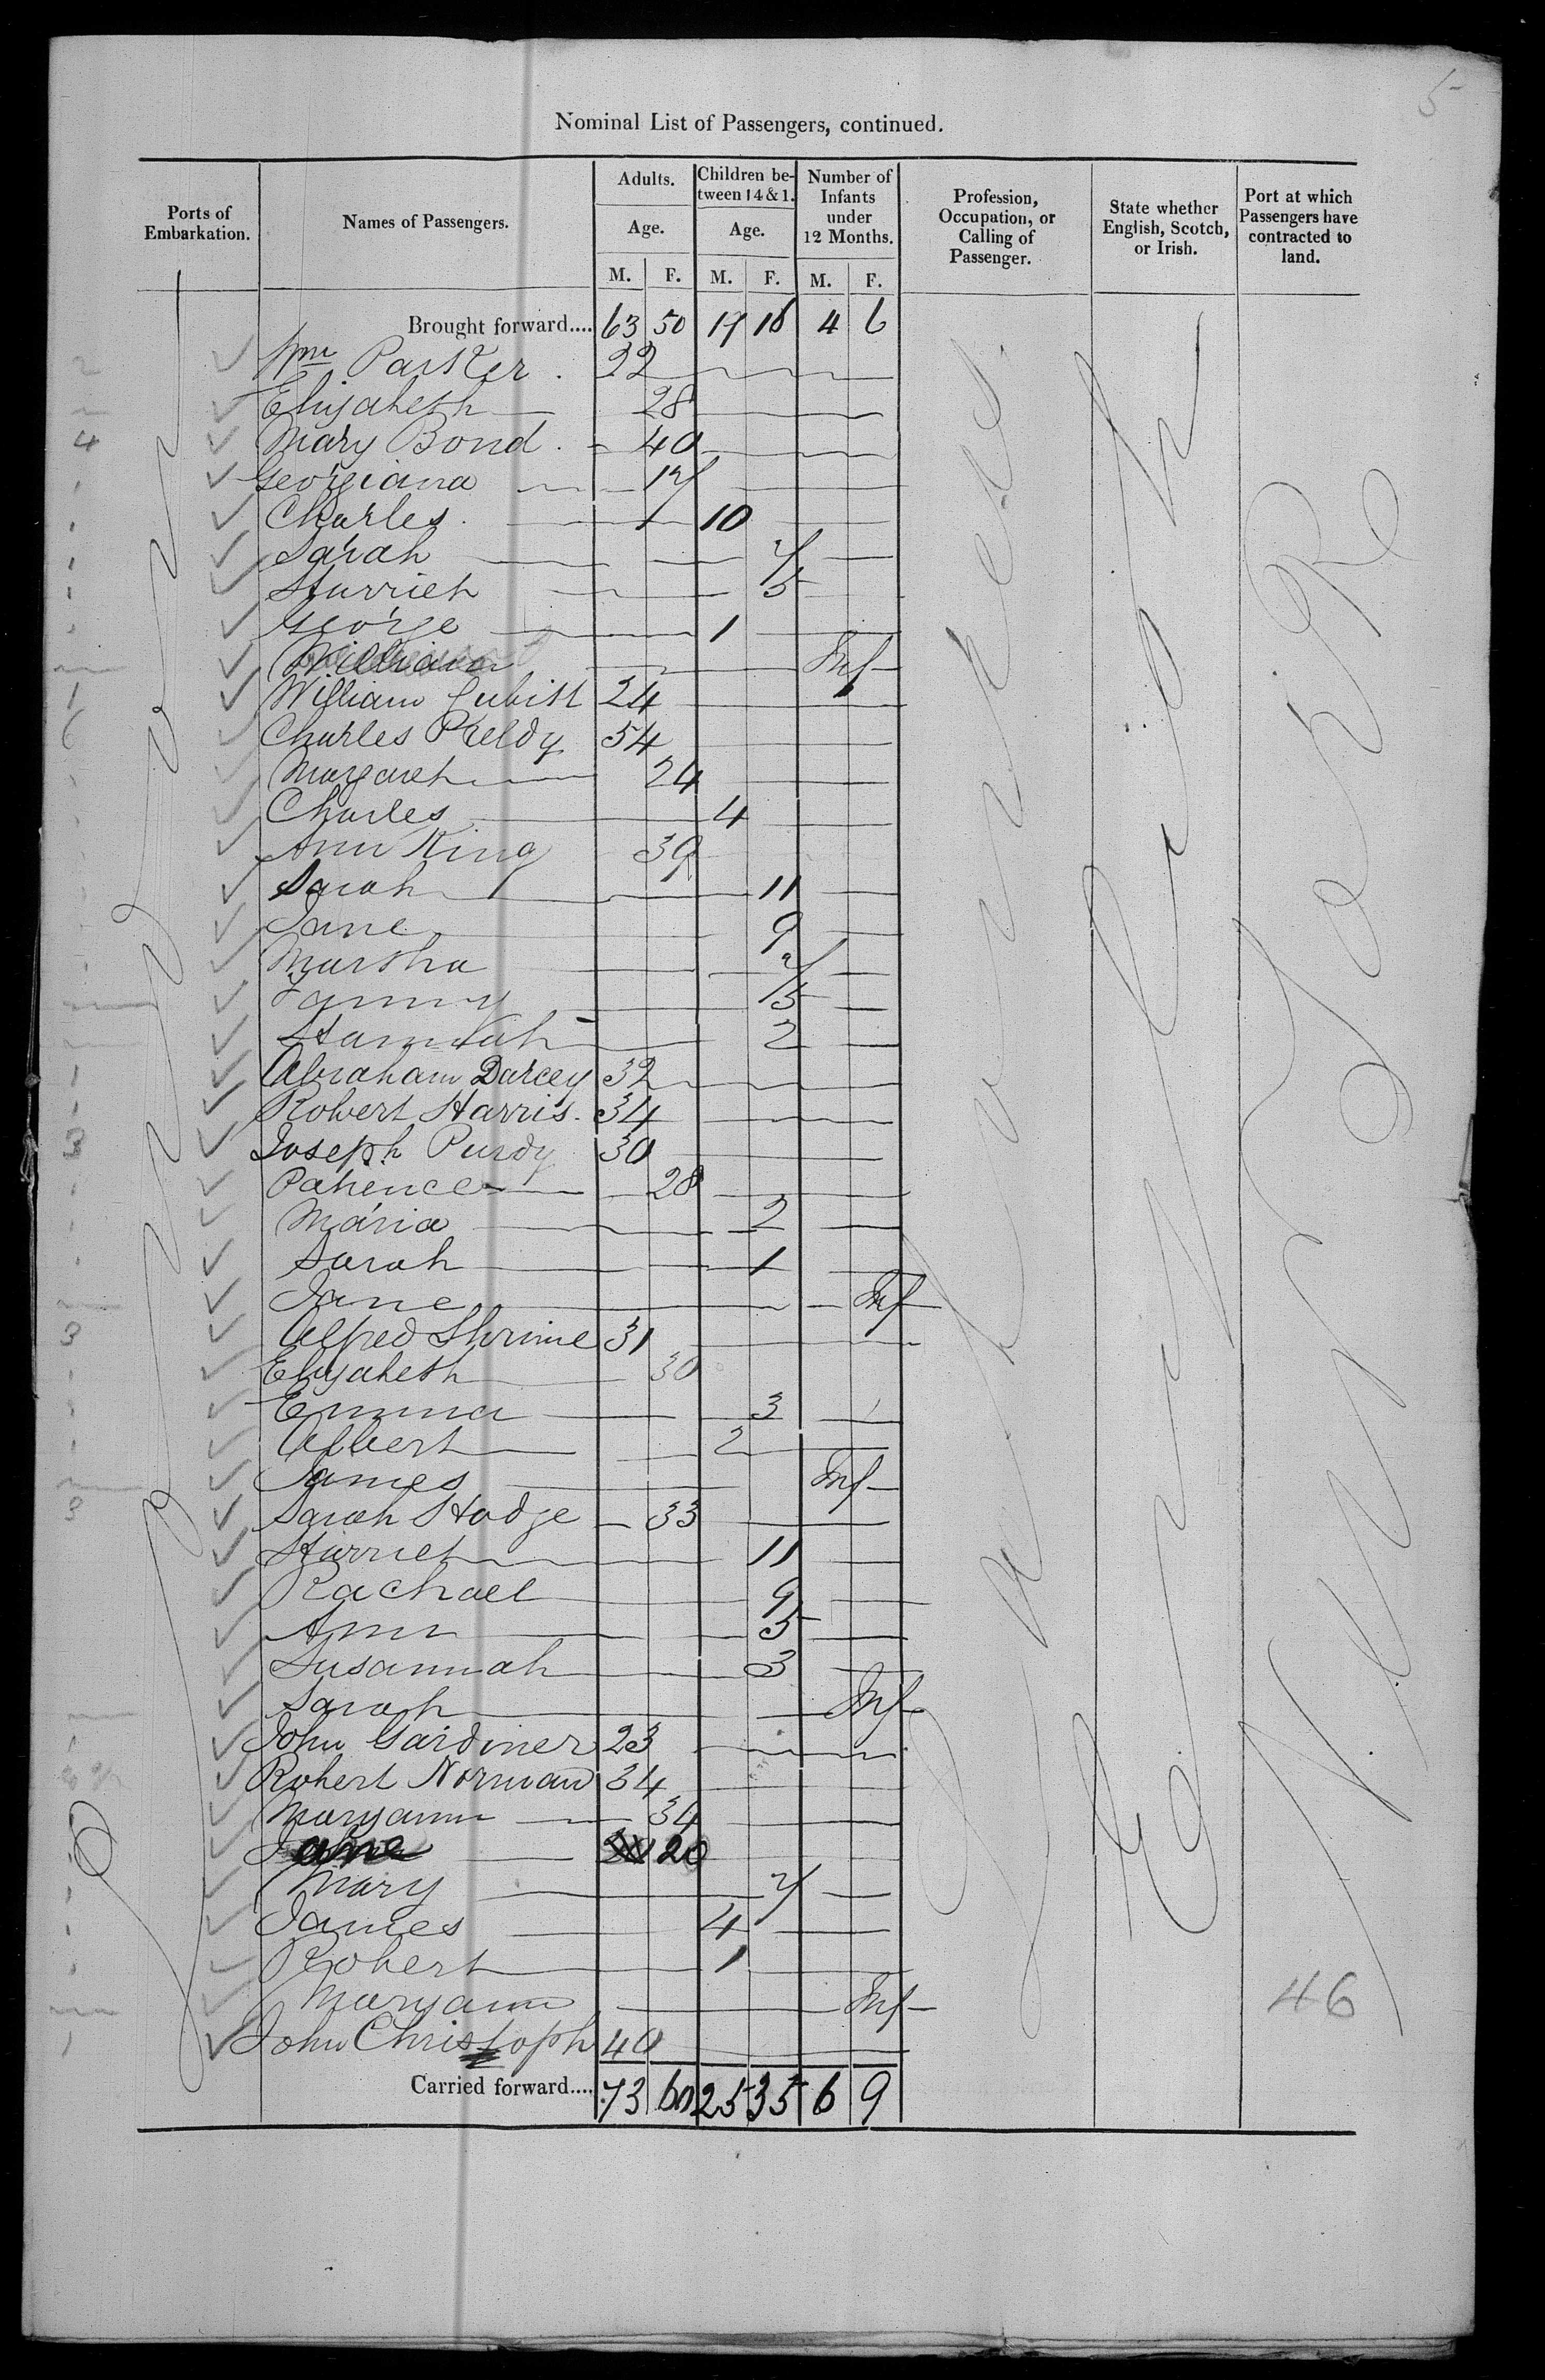 5
Nominal List of Passengers, continued.
Ports of Embarkation. Names of Passengers. Adults. Age. M. F. Children between 14 & 1. Age. M. F. Number of Infants under 12 Months. M. F. Profession, Occupation, or Calling of Passenger. State whether English, Scotch, or Irish. Port at which Passengers have contracted to land.
Brought forward.... 63 50 19 18 4 6
2 Wm Parker 22
Elizabeth 28
4 Mary Bond 40
Georgiana 17
Charles 10
Sarah 7
Harriet 5
George 1
William Inf
1 William Cubitt 24
6 Charles Preldy 54
Margaret 24
Charles 4
Ann King 39
Sarah 11
Jane 9
Martha 7
Fanny 5
Hannah 2
1 Abraham Darcey 32
1 Robert Harris 34
3 Joseph Purdy 30
Patience 28
Maria 2
Sarah 1
Jane Inf
3 Alfred Shrime 31
Elizabeth 30
Emma 3
Albert 2
James Inf
3 Sarah Hodge 33
Harriet 11
Rachael 9
Ann 5
Susannah 3
Sarah Inf
1 John Gardiner 23
Robert Norman 34
Maryann 34
Jane 20
Mary 7
James 4
Robert 1
Maryann Inf
1 John Christoph 40
Carried forward.... 73 60 25 35 6 9
English
New York
46